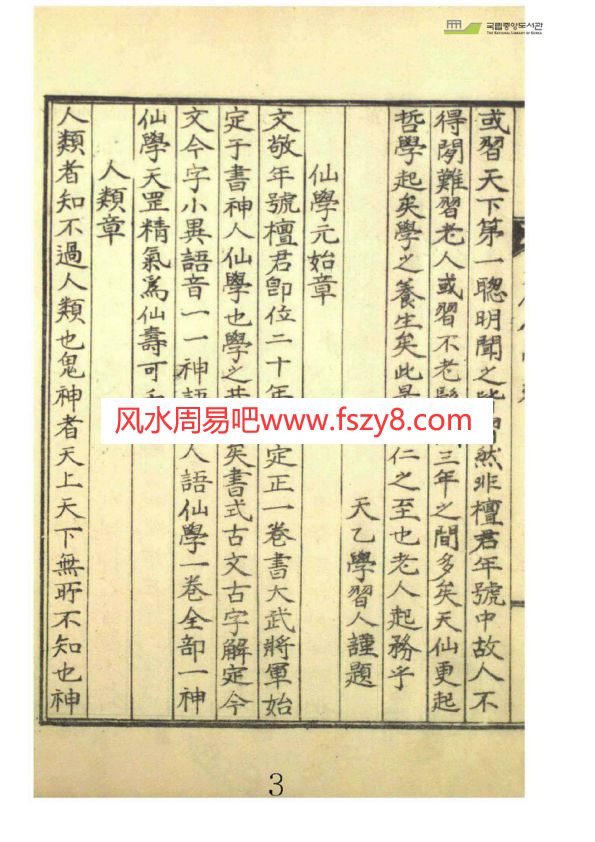 국립중앙도서관
THE NATIONAL LIBRARY OF KOREA
或習天下第一聰明聞之 然非檀君年號中故人不
得閱難習老人或習不老 三年之間多矣天仙更起
哲學起矣學之養生矣此是 仁之至也老人起務乎
天乙學習人謹題
仙學元始章
文敬年號檀君卽位二十年 定正一卷書大武將軍始
定于書神人仙學也學之 矣書式古文古字解定今
文今字小異語音一一神語 人語仙學一卷全部一神
仙學天罡精氣爲仙壽可
人類章
人類者知不過人類也鬼神者天上天下無所不知也神
风水周易吧www.fszy8.com
3